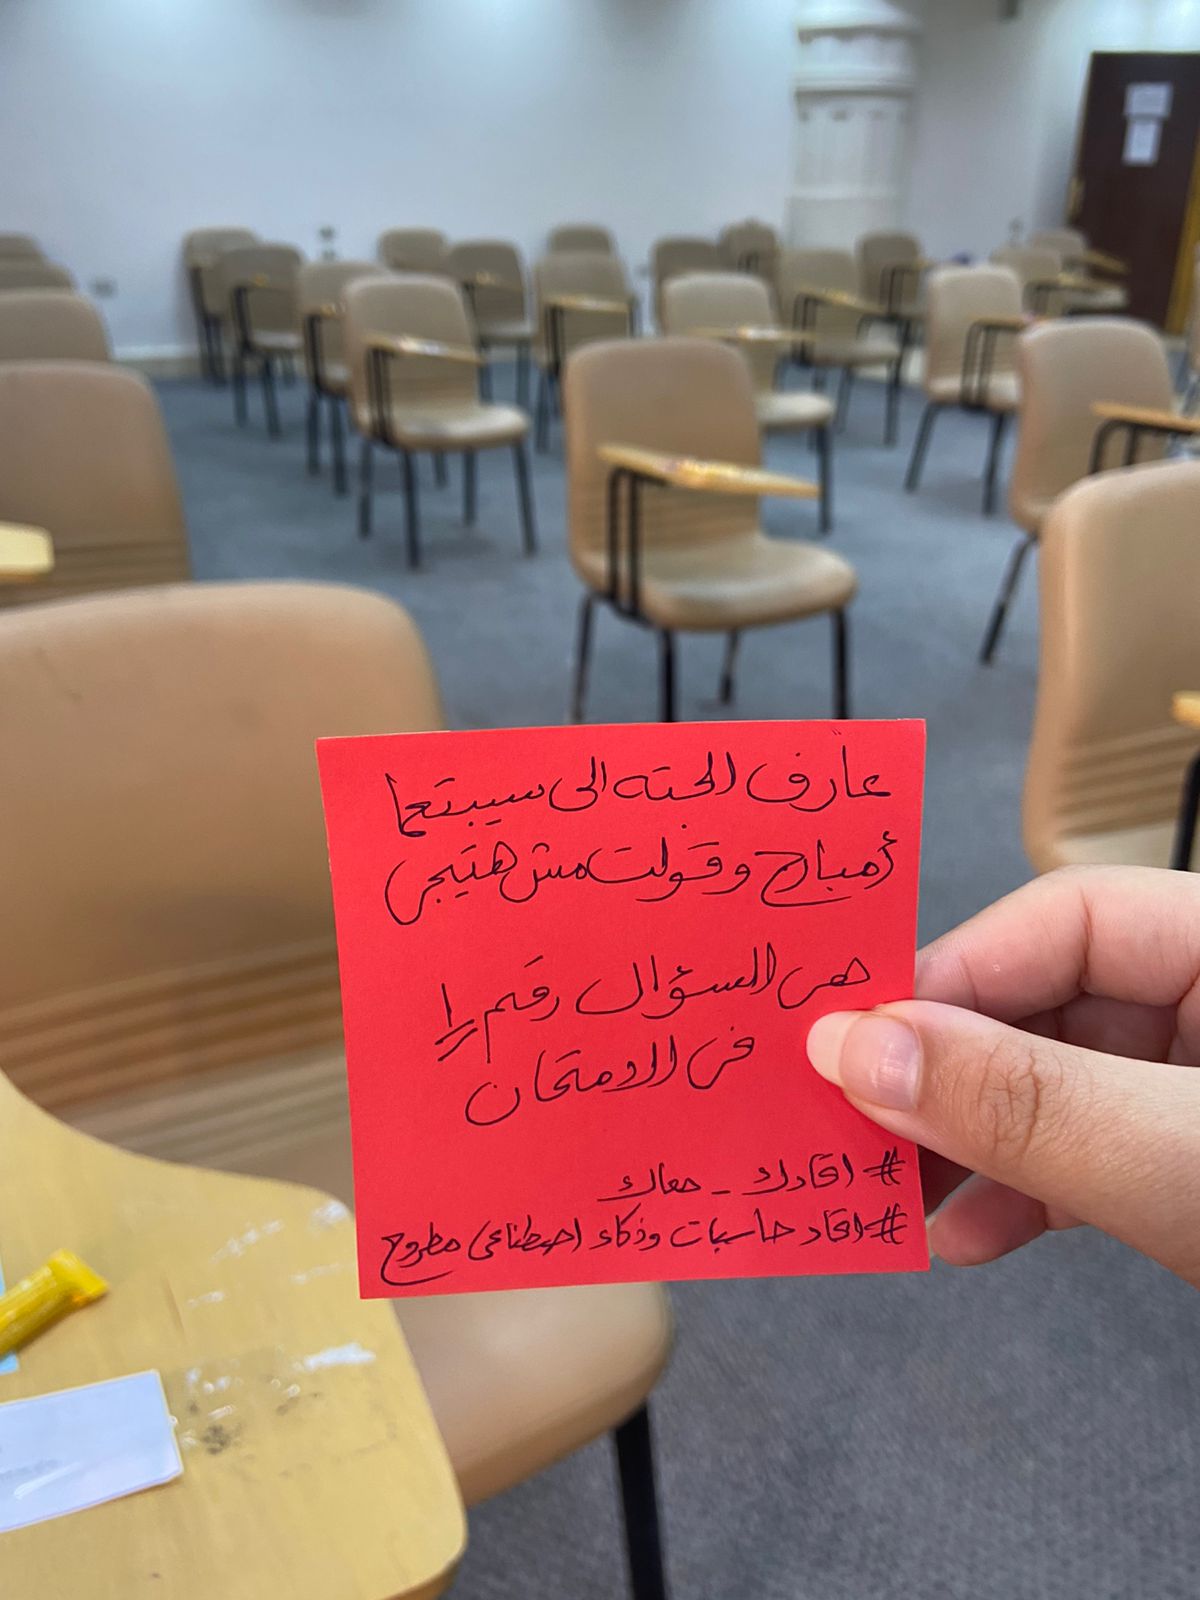 عارف الحته الى سيبتها
أمبارح وقولت مش هتيجى
هى السؤال رقم 1
فى الامتحان
# اتحادك _ معاك
# اتحاد حاسبات وذكاء اصطناعى مطروح